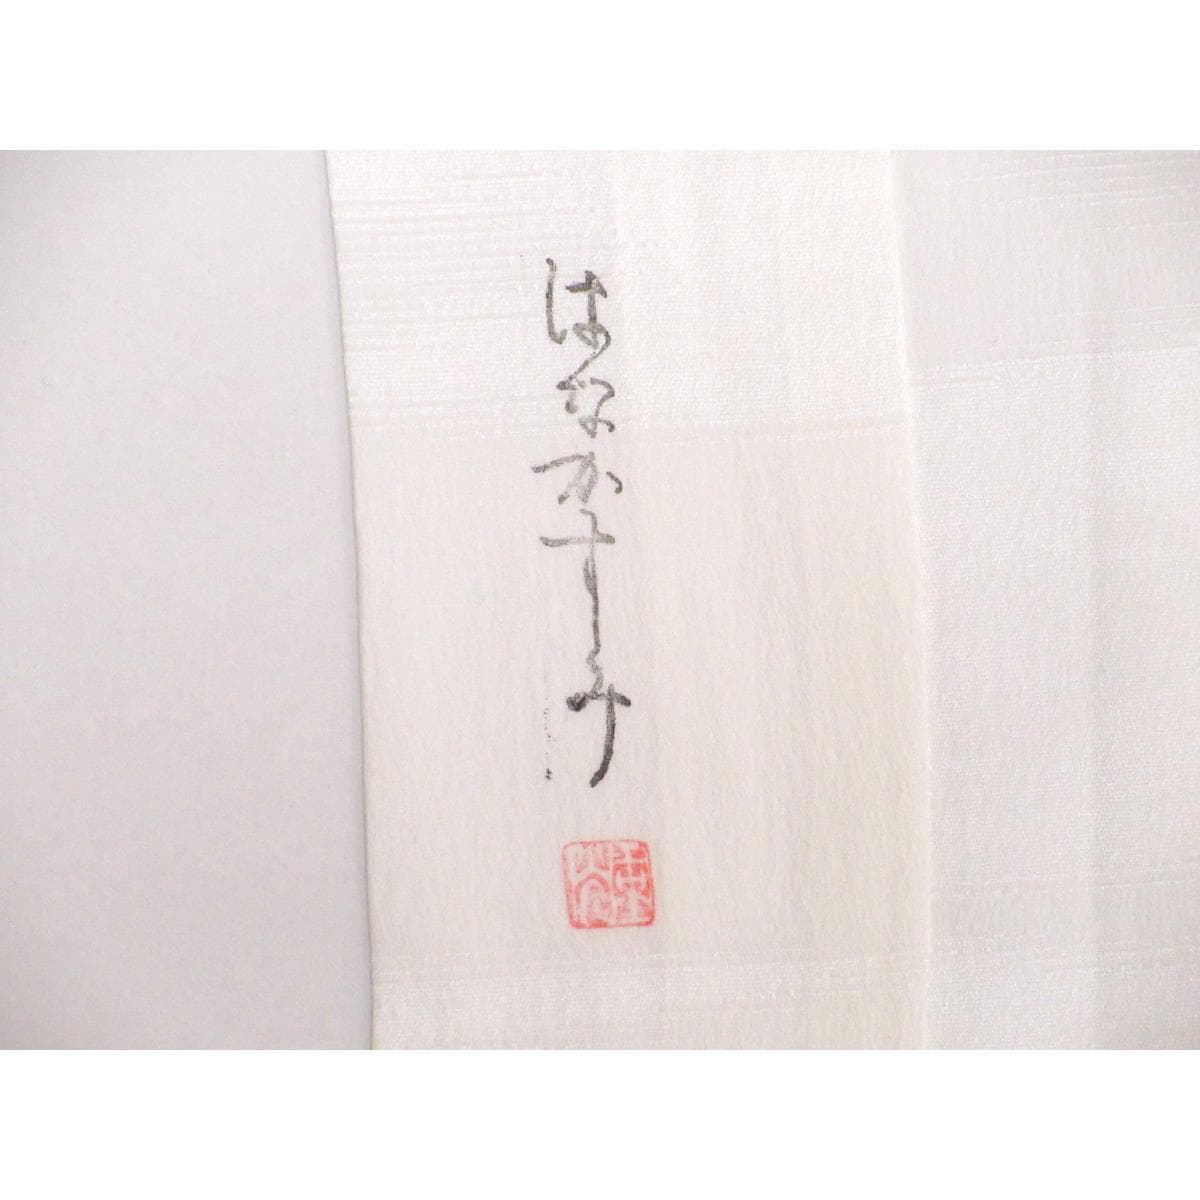 はなかすみ